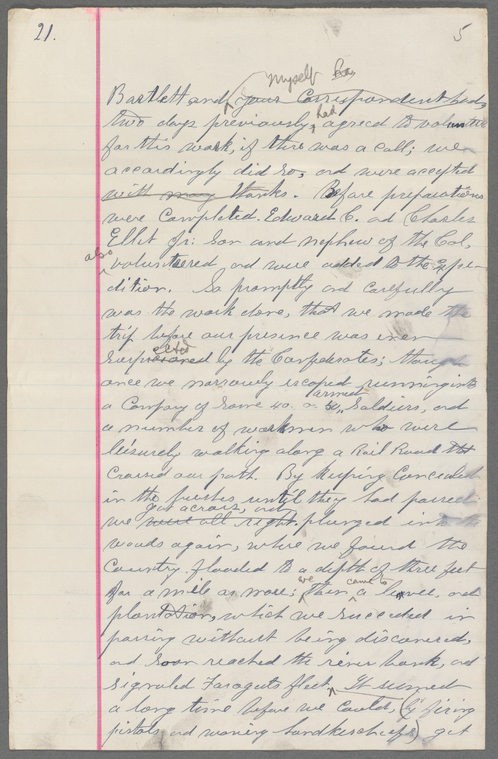 21.
5
myself
Bartlett and your Correspondent had,
two days previously, had agreed to volunteer
for this work, if there was a call; we
accordingly did so, and were accepted
with many thanks. Before preparations
were Completed. Edward C. ad Charles
Ellet Jr: Son and nephew of the Col,
also
volunteered and were added to the Expe-
dition. So promptly and carefully
was the work done, that we made the
trip before our presence was even
ected
by the Confederates; though
once we narrowly escaped running into
armed
a Company of Some 40. or 50, Soldiers, and
a number of workmen who were
leisurely walking along a Rail Road that
Crossed our path. By keeping Concealed
in the bushes until they had passed
got across, and
we went all right. plunged into the
woods again, where we found the
Country flooded to a depth of three feet
for a mile or more; we
then, came to a levee, and
plantation, which we Succeeded in
passing without being discovered,
and soon reached the river bank, and
signaled Faraguts fleet, It seemed
a long time before we Could, (by firing
pistols and waving handkerchiefs) get